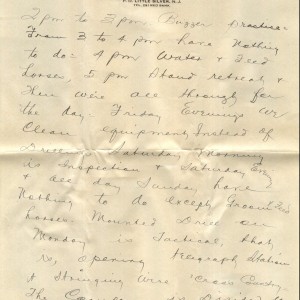 P.O. LITTLE SILVER, N.J.
2 pm to 3 pm Buzzer Practice
From 3 to 4 pm have Nothing
to do. 4 pm Water & Feed
horses, 5 pm Stand retreat &
then were all through for
the day. Friday Evenings we
Clean equipment, Instead of
Drilling Saturday Morning
is Inspection & Saturday Eng
& all day Sunday have
Nothing to do except
horses. Mounted Drill on
Monday is Tactical, that
is, opening telegraph Station
& Stringing Wire
The